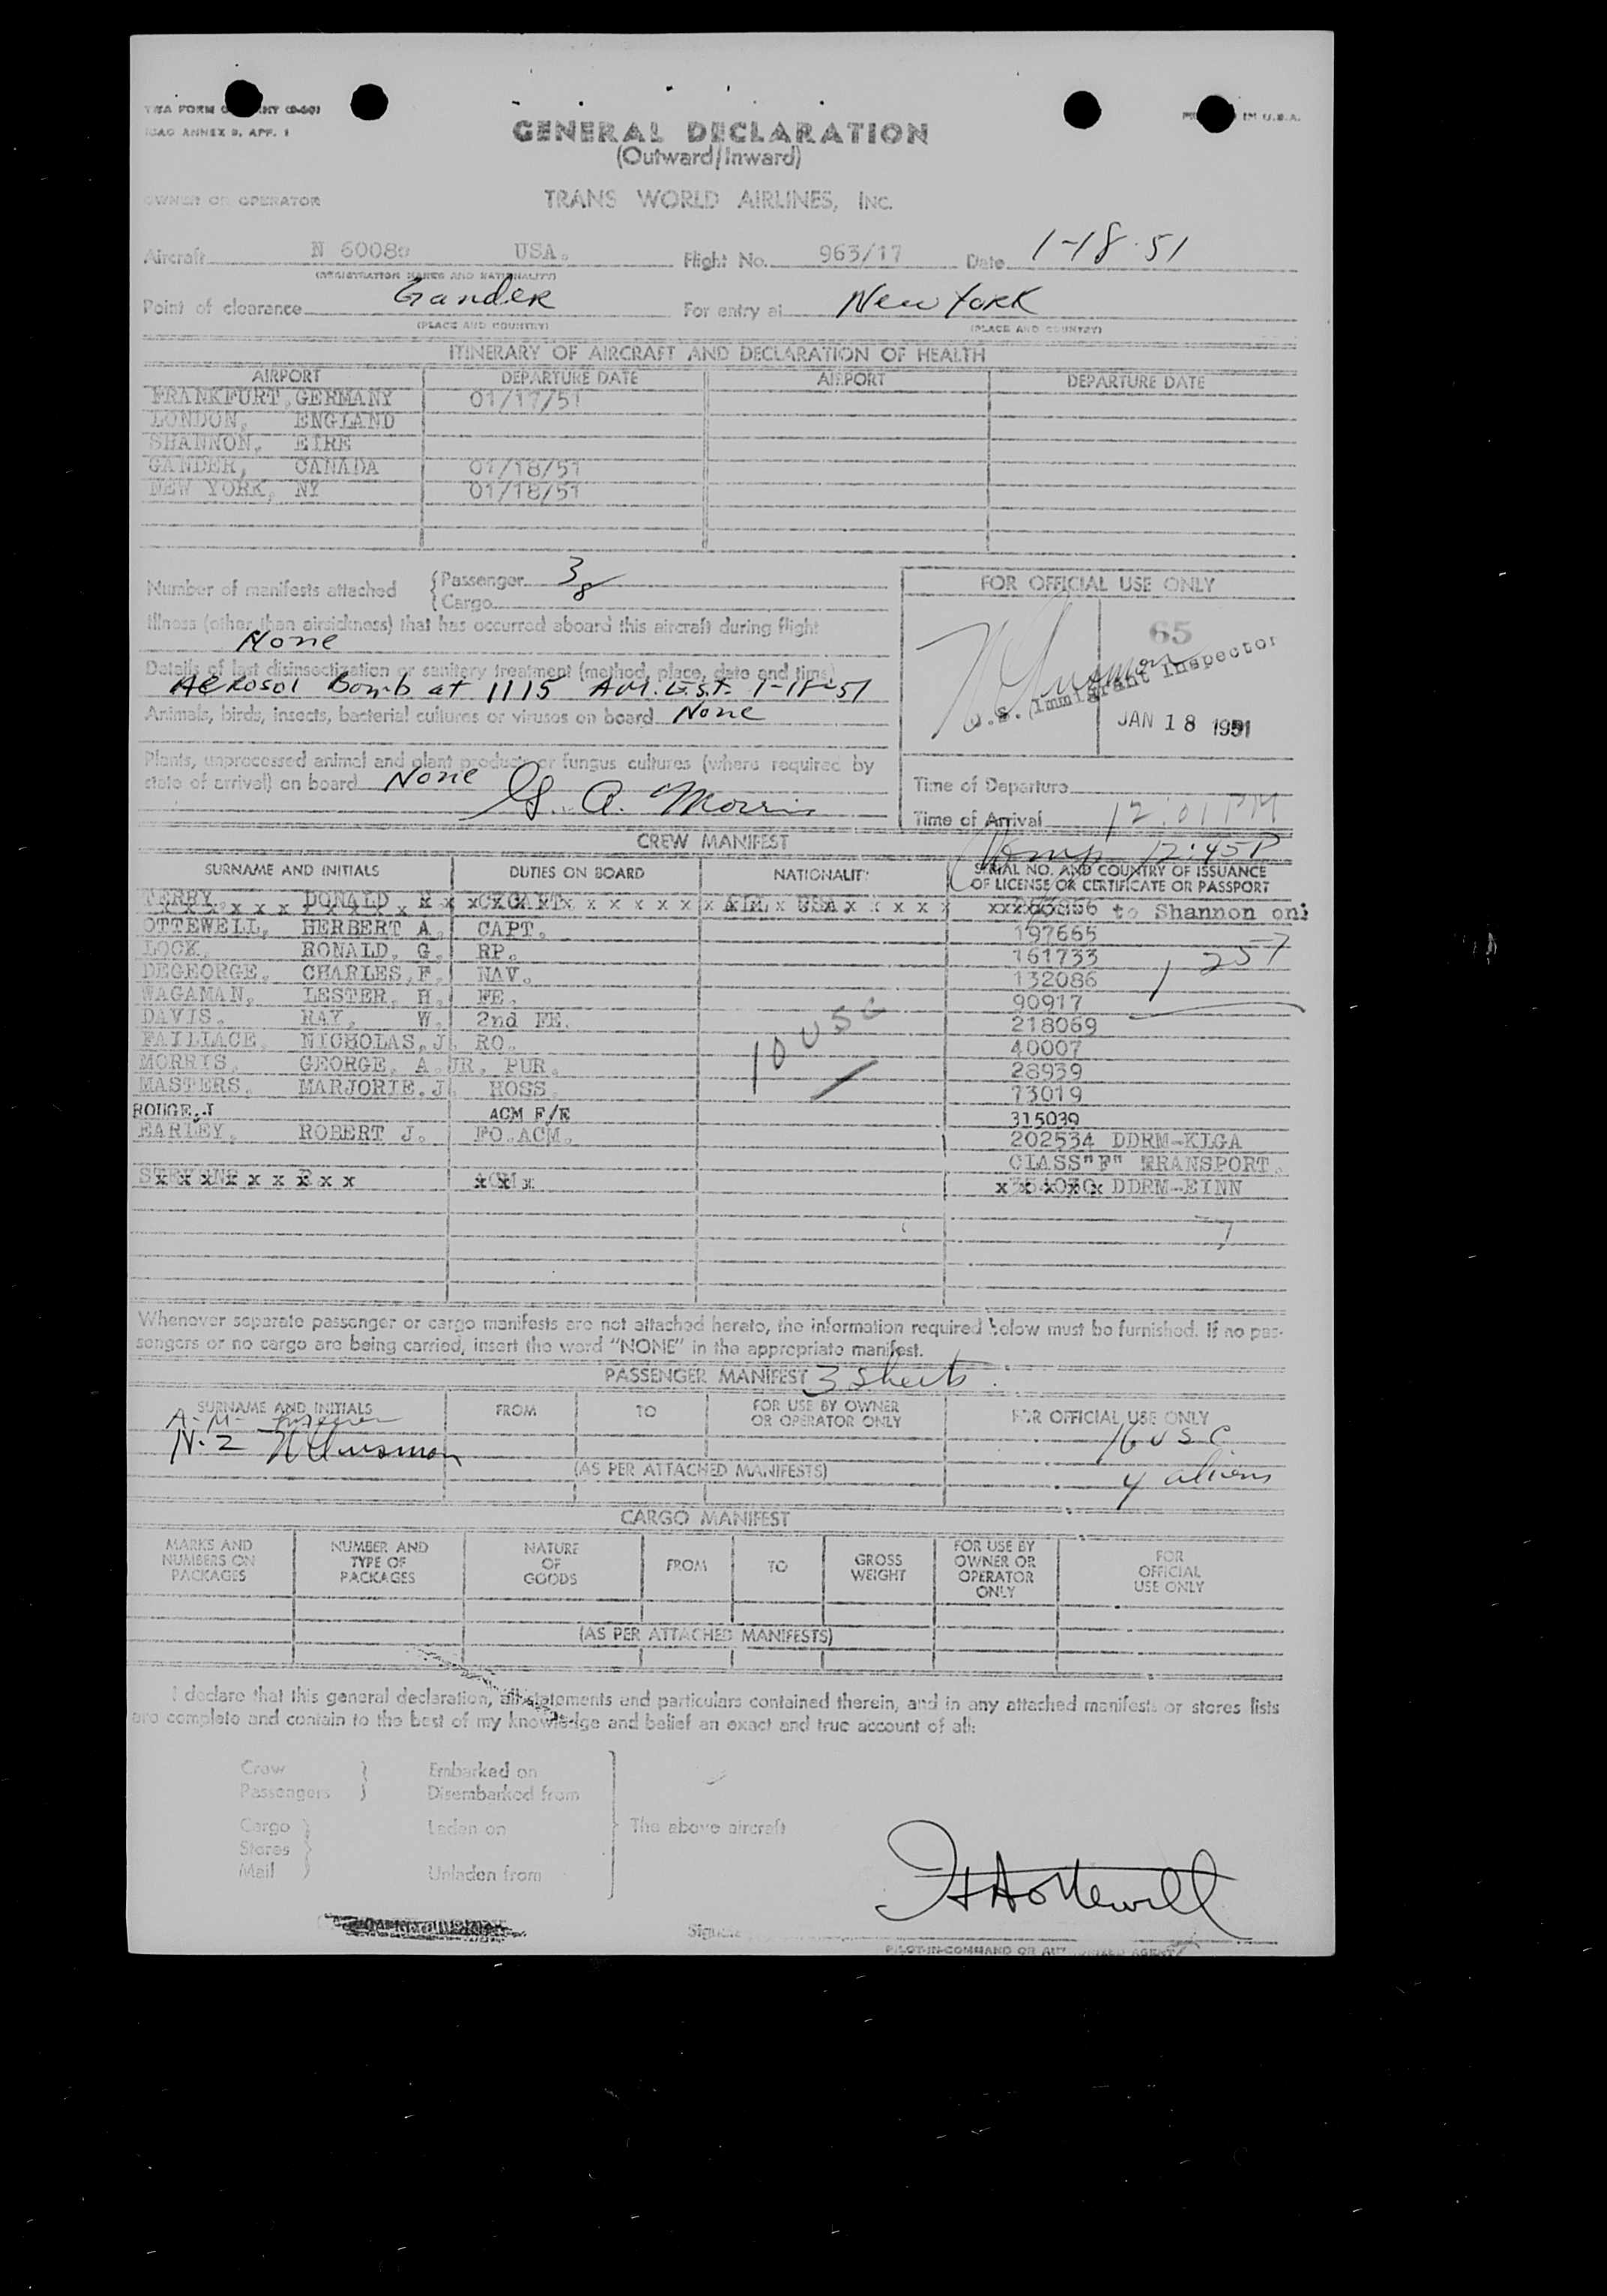 ICAO ANNEX 9, APP. 1
GENERAL DECLARATION
(Outward/Inward)
OWNER OR OPERATOR TRANS WORLD AIRLINES, INC.
Aircraft N 6008 USA. Flight No. 963/17 Date 1-18-51
(REGISTRATION MARKS AND NATIONALITY)
Point of clearance Gander For entry at New York
(PLACE AND COUNTRY) (PLACE AND COUNTRY)
ITINERARY OF AIRCRAFT AND DECLARATION OF HEALTH
AIRPORT DEPARTURE DATE AIRPORT DEPARTURE DATE
FRANKFURT, GERMANY 01/17/51
LONDON, ENGLAND
SHANNON, EIRE
GANDER, CANADA 01/18/51
NEW YORK, NY 01/18/51
Number of manifests attached { Passenger 3
{ Cargo
FOR OFFICIAL USE ONLY
Illness (other than airsickness) that has occurred aboard this aircraft during flight
None
65
U.S. Immigrant Inspector
JAN 18 1951
Details of last disinsectization or sanitary treatment (method, place, date and time)
Aerosol Bomb at 1115 A.M. E.S.T. 1-18-51
Animals, birds, insects, bacterial cultures or viruses on board None
Plants, unprocessed animal and plant products or fungus cultures (where required by
state of arrival) on board None G. A. Morris
Time of Departure
Time of Arrival 12:01 PM
12:45P
CREW MANIFEST
SURNAME AND INITIALS DUTIES ON BOARD NATIONALITY SERIAL NO. AND COUNTRY OF ISSUANCE
OF LICENSE OR CERTIFICATE OR PASSPORT
TERRY, DONALD to Shannon onl
OTTEWELL, HERBERT A. CAPT. 197665
LOCK, RONALD, G. RP. 161733
DEGEORGE, CHARLES, F. NAV. 132086
WAGAMAN, LESTER, H. FE. 90917
DAVIS, RAY, W. 2nd FE. 218069
FAILLACE, NICHOLAS, J. RO. 40007
MORRIS, GEORGE, A. JR. PUR. 28939
MASTERS, MARJORIE. J. HOSS. 73019
10 USC
257
ROUGE, J ACM F/E 315039
EARLEY, ROBERT J. FO. ACM. 202534 DDRM-KLGA
CLASS "F" TRANSPORT.
DDRM-EINN
Whenever separate passenger or cargo manifests are not attached hereto, the information required below must be furnished. If no pas-
sengers or no cargo are being carried, insert the word "NONE" in the appropriate manifest.
PASSENGER MANIFEST 3 sheets
SURNAME AND INITIALS FROM TO FOR USE BY OWNER OR OPERATOR ONLY FOR OFFICIAL USE ONLY
16 USC
(AS PER ATTACHED MANIFESTS)
4 aliens
CARGO MANIFEST
MARKS AND NUMBERS ON PACKAGES NUMBER AND TYPE OF PACKAGES NATURE OF GOODS FROM TO GROSS WEIGHT FOR USE BY OWNER OR OPERATOR ONLY FOR OFFICIAL USE ONLY
(AS PER ATTACHED MANIFESTS)
I declare that this general declaration, all statements and particulars contained therein, and in any attached manifests or stores lists
are complete and contain to the best of my knowledge and belief an exact and true account of all:
Crew } Embarked on
Passengers } Disembarked from
Cargo } Laden on The above aircraft
Stores }
Mail } Unladen from
H A Ottewill
PILOT-IN-COMMAND OR AUTHORIZED AGENT